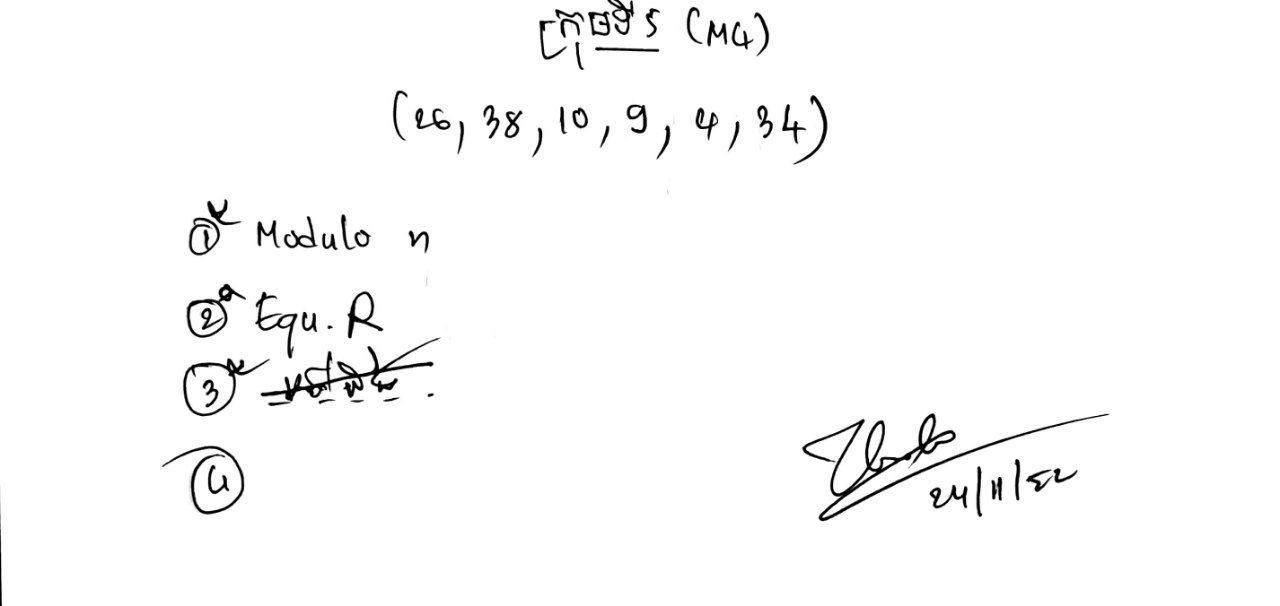 ក្រុមទី ៤ (M4)
(26, 38, 10, 9, 4, 34)
① Modulo n
② Equ. R
③
④
24/11/22